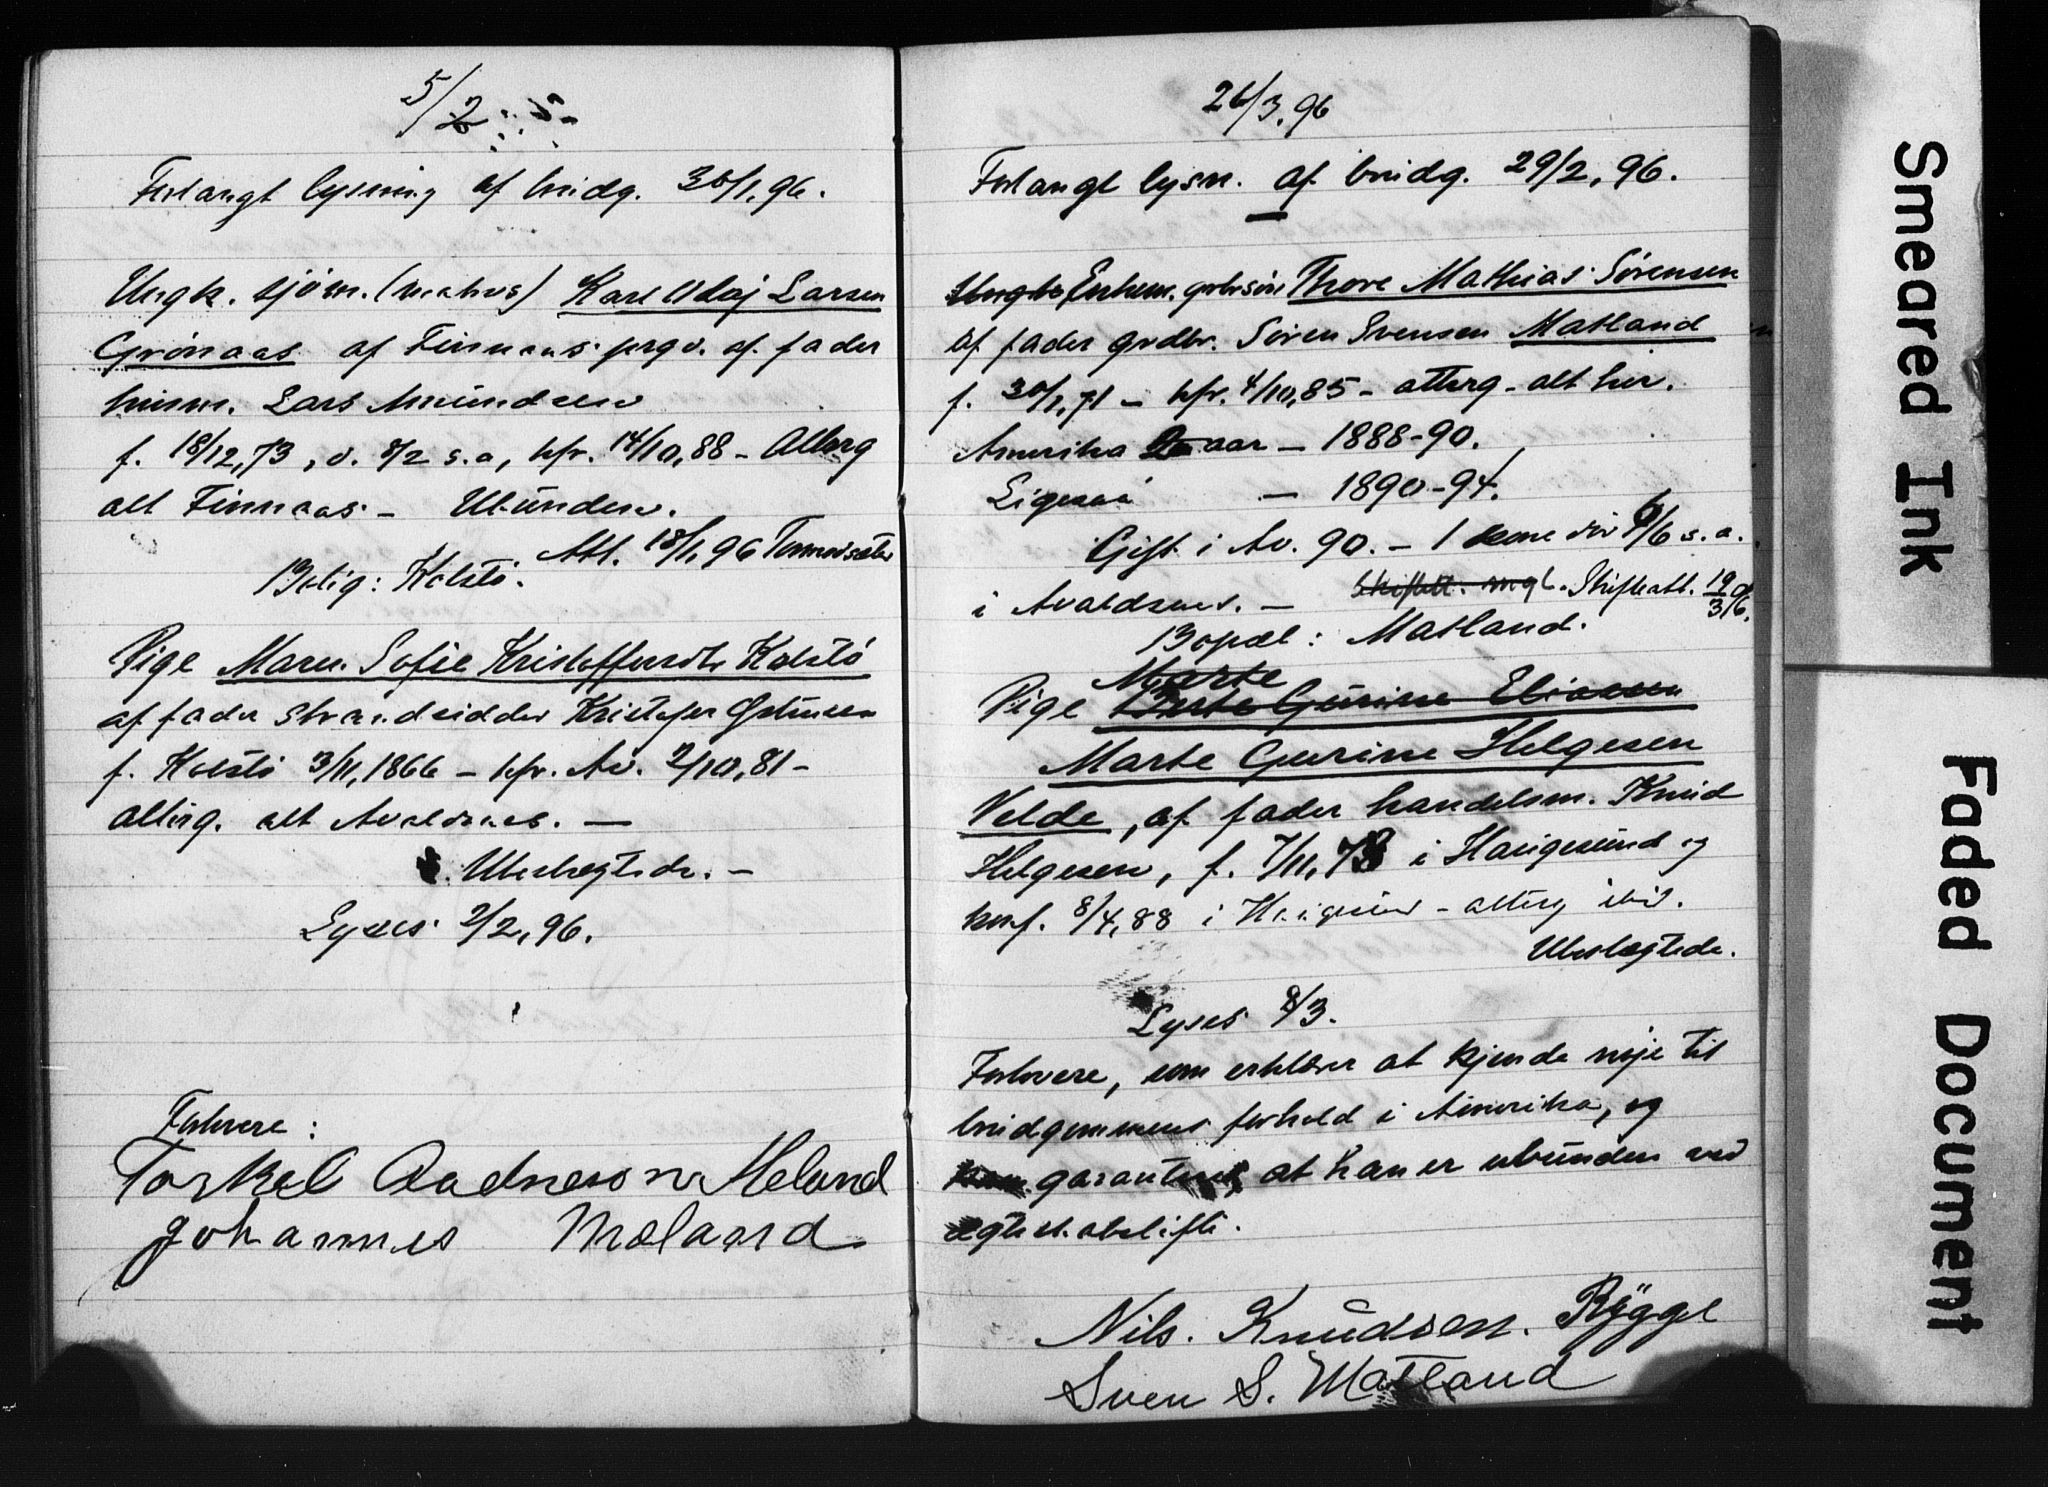 5/2
Forlangt lysning af brudg. 30/1, 96.
Ungk. sjøm. (matros) Karl Olaj Larsen
Grønaas af Finnaas prgd. af fader
husm. Lars Amundsen
f. 18/12, 73, d. 8/2 s. a, kfr. 14/10, 88 - Alterg
alt Finnaas. - Ubunden.
Att. 18/1 96
Bolig: Kolstø.
Pige Maren Sofie Kristoffersdtr Kolstø
af fader strandsidder Kristofer
f. Kolstø 3/11, 1866 - kfr. Av. 2/10, 81 -
alterg. alt Avaldsnes. -
Ubeslægtede. -
Lyses 2/2, 96.
Forlovere:
Torkel Aadneson Meland
Johannes Mæland
26/3, 96
Forlangt lysn. af brudg. 29/2, 96.
Enkem. grbrsøn Thore Mathias Sørensen
af fader grdbr. Søren Svensen Matland
f. 30/1, 71 - kfr. 4/10, 85 - alterg - alt her.
Amerika 2 aar - 1888-90.
Ligesaa - 1890-94.
Gift i Av. 90. - 1 kone død 6/6 s. a.
i Avaldsnes. - Skifteatt. mgl. Skifteatt. 19/3 96.
Bopæl: Matland.
Marte
Pige Berte Gurine Eliasen
Marte Gurine Helgesen
Velde, af fader handelsm. Knud
Helgesen, f. 7/11, 73 i Haugesund og
konf. 8/4, 88 i Haugesund - alterg ibid.
Ubeslægtede.
Lyses 8/3.
Forlovere, som erklærer at kjende nøje til
brudgommens forhold i Amerika, og
garanterer, at han er ubunden ved
ægteskabsløfte.
Nils. Knudsen. Rygge
Sven S. Matland
Smeared Ink
Faded Document